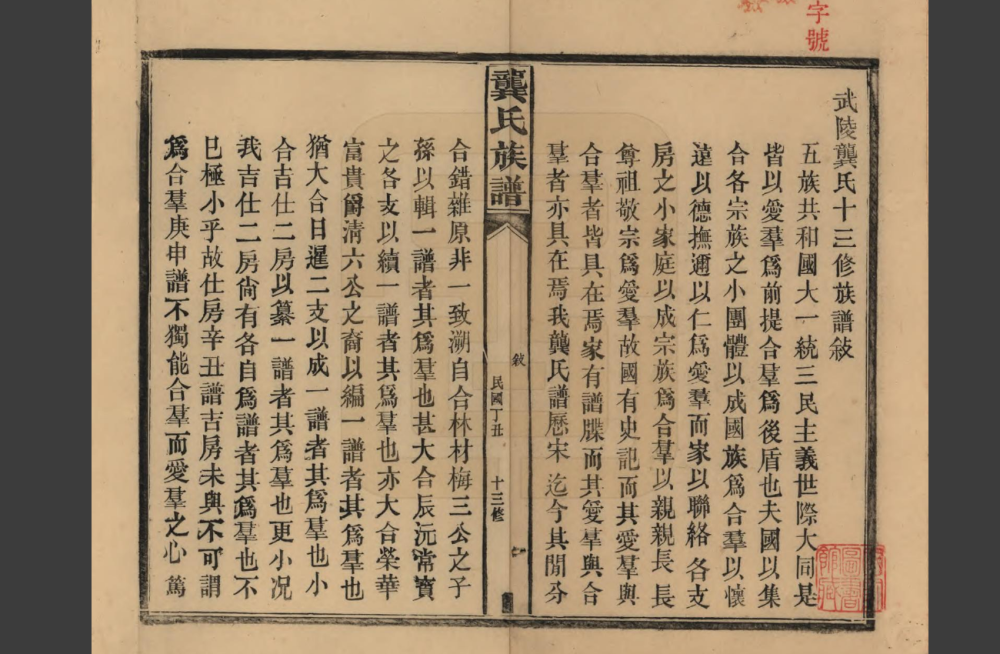 字號
武陵龔氏十三修族譜敍
五族共和國大一統三民主義世際大同是
皆以愛羣爲前提合羣爲後盾也夫國以集
合各宗族之小團體以成國族爲合羣以懷
遠以德撫邇以仁爲愛羣而家以聯絡各支
房之小家庭以成宗族爲合羣以親親長長
尊祖敬宗爲愛羣故國有史記而其愛羣與
合羣者皆具在焉家有譜牒而其愛羣與合
羣者亦具在焉我龔氏譜歷宋迄今其間分
龔氏族譜
敍
民國丁丑
十三修
合錯雜原非一致溯自合林材梅三公之子
孫以輯一譜者其爲羣也甚大合辰沅常寶
之各支以續一譜者其爲羣也亦大合榮華
富貴爵清六公之裔以編一譜者其爲羣也
猶大合日暹二支以成一譜者其爲羣也小
合吉仕二房以纂一譜者其爲羣也更小况
我吉仕二房尙有各自爲譜者其爲羣也不
已極小乎故仕房辛丑譜吉房未與不可謂
爲合羣庚申譜不獨能合羣而愛羣之心篤